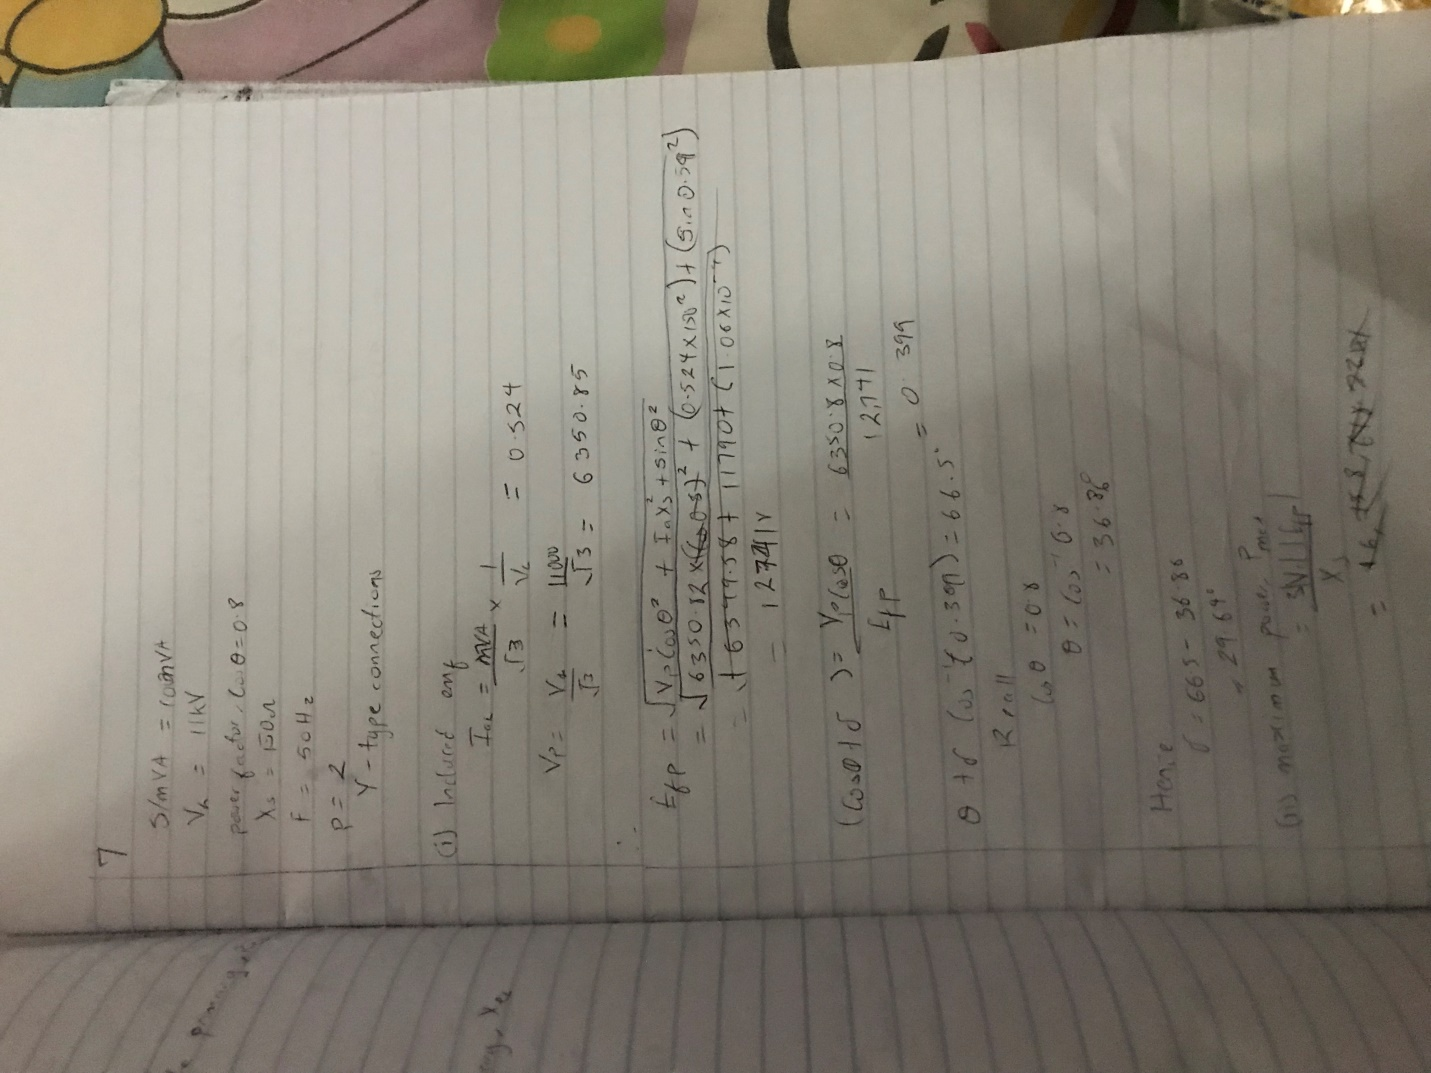 7
S/mVA = 100mVA
VL = 11kV
power factor, Cos θ = 0.8
Xs = 150Ω
F = 50Hz
P = 2
Y - type connections
(i) Induced emf
IaL = mVA/√3 × 1/VL = 0.524
Vp = VL/√3 = 11000/√3 = 6350.85
Efp = √Vp Cosθ² + IaXs² + sinθ²
= √6350.82 × (0.8)² + (0.524×150²) + (sin 0.59²)
= √6349.58 + 11790 + (1.06×10⁻⁴)
= 12741V
(Cosθ + δ) = VpCosθ/Efp = 6350.8 × 0.8/12,741
= 0.399
θ + δ Cos⁻¹(0.399) = 66.5°
Recall
Cos θ = 0.8
θ = Cos⁻¹ 0.8
= 36.86
Hence
δ = 66.5 - 36.86
= 29.69°
(ii) maximum power, Pmax
= 3|V||Efp|/Xs
=